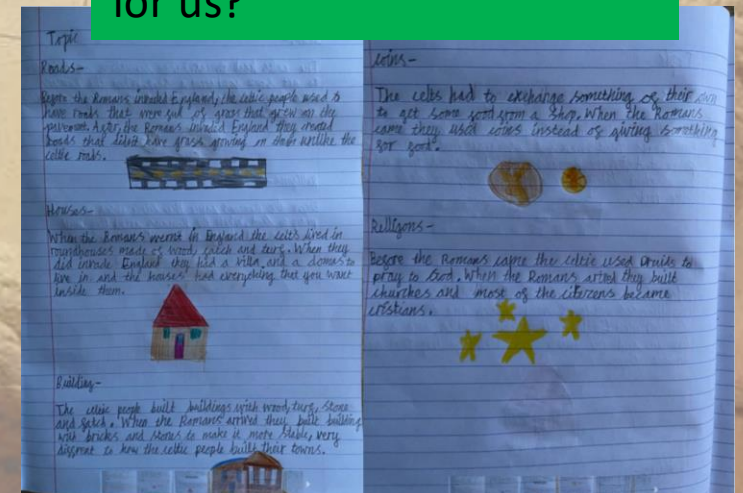 for us?
Topic
Roads-
Before the Romans invaded England, the celtic people used to
have roads that were ful of grass that grew on the
pavement. After the Romans invaded England they created
roads that didn't have grass growing in them unlike the
celtic roads.
Houses-
When the Romans weren't in England the celts lived in
roundhouses made of wood, and turf. When they
did invade England they had a villa and a domes to
live in and the houses had everything that you want
inside them.
Building-
The celtic people built buildings with wood, turf, stone
and . When the Romans arrived they built building
with bricks and stones to make it more stable, very
to how the celtic people built their towns.
coins-
The celts had to exchange something of their own
to get some food from a shop. When the Romans
came they used coins instead of giving something
for food.
Relligons-
Before the Romans came the celtic used Druids to
pray to God. When the Romans they built
churches and most of the became
cristians.